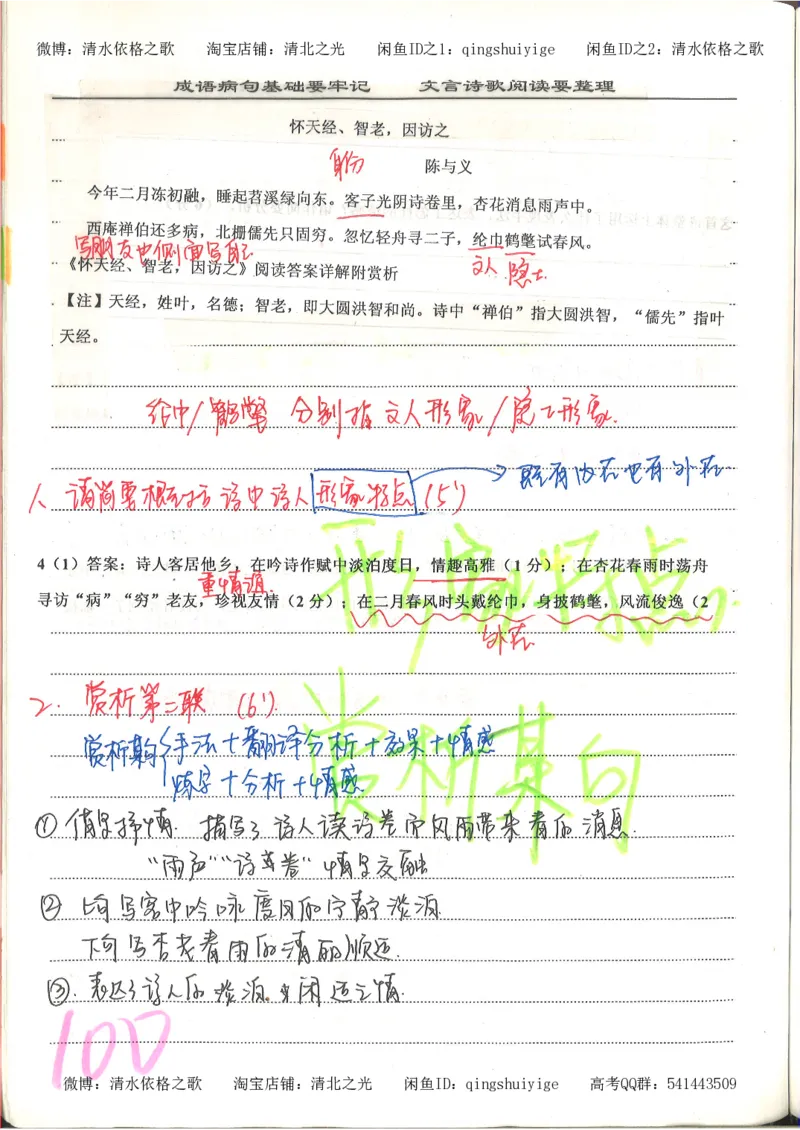 微博：清水依格之歌 淘宝店铺：清北之光 闲鱼ID之1：qingshuiyige 闲鱼ID之2：清水依格之歌
成语病句基础要牢记 文言诗歌阅读要整理
怀天经、智老，因访之
身份 陈与义
今年二月冻初融，睡起苕溪绿向东。客子光阴诗卷里，杏花消息雨声中。
西庵禅伯还多病，北栅儒先只固穷。忽忆轻舟寻二子，纶巾鹤氅试春风。
写朋友也侧面写自己
《怀天经、智老，因访之》阅读答案详解附赏析
文人 隐士
【注】天经，姓叶，名德；智老，即大圆洪智和尚。诗中“禅伯”指大圆洪智，“儒先”指叶
天经。
纶巾/鹤氅 分别指 文人形象/隐士形象.
既有内在也有外在
1、请简要概括 诗中诗人形象特点（5'）
4（1）答案：诗人客居他乡，在吟诗作赋中淡泊度日，情趣高雅（1 分）；在杏花春雨时荡舟
重情谊.
寻访“病”“穷”老友，珍视友情（2 分）；在二月春风时头戴纶巾，身披鹤氅，风流俊逸（2
形象特点
外在
2. 赏析第二联（6'）.
赏析某句
赏析某句 手法＋翻译分析＋效果＋情感
炼字＋分析＋情感
① 借景抒情. 描写了诗人读诗卷而风雨带来春的消息.
“雨声”“诗卷” 情景交融
② 上句写客中吟咏度日的宁静淡泊
下句写杏花春雨的清丽
③. 表达了诗人的淡泊、闲适之情.
100
微博：清水依格之歌 淘宝店铺：清北之光 闲鱼ID：qingshuiyige 高考QQ群：541443509